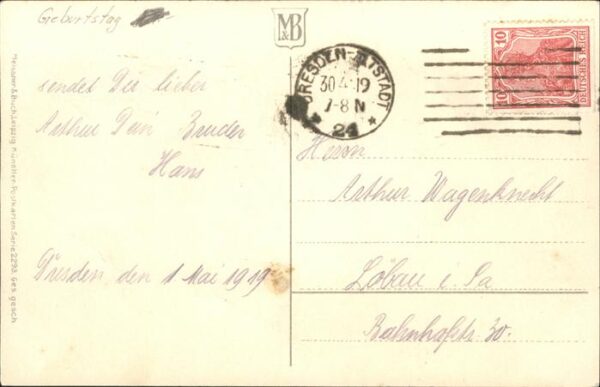 Geburtstag
M&B
sendet Dir lieber
Arthur Dein Bruder
Hans
Dresden den 1 Mai 1919
DRESDEN-ALTSTADT
30.4.19
7-8 N
* 24 *
10 10
DEUTSCHES REICH
Herrn
Arthur Wagenknecht
Löbau i. Sa
Bahnhofstr. 30.
Meissner & Buch, Leipzig Künstler-Postkarten Serie 2293. Ges. gesch